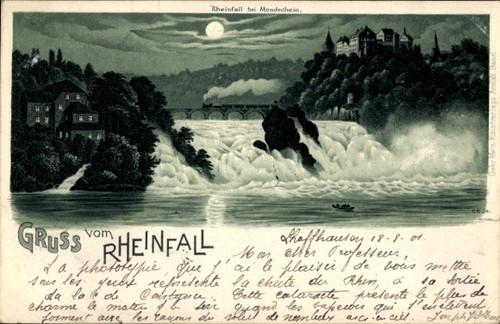 Rheinfall bei Mondschein.
Gruss vom RHEINFALL
Schaffhausen 18-8-01
Mon cher Professeur,
La phototypie que j'ai le plaisir de vous mettre
sous les yeux représente la chute du Rhin, à sa sortie
du lac de Constance. Cette cataracte présente le plus de
charme le matin et le soir quand les vapeurs qui s'enlèvent
forment avec les rayons du soleil de nombreux arc-en-ciel.